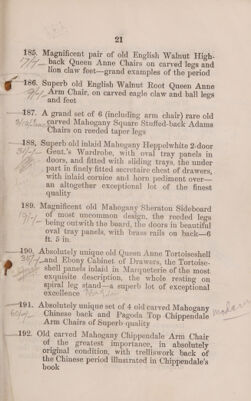 21
185. Magnificent pair of old English Walnut High-
back Queen Anne Chairs on carved legs and
lion claw feet—grand examples of the period
186. Superb old English Walnut Root Queen Anne
Arm Chair, on carved eagle claw and ball legs
and feet
187. A grand set of 6 (including arm chair) rare old
carved Mahogany Square Stuffed-back Adams
Chairs on reeded taper legs
188. Superb old inlaid Mahogany Heppelwhite 2-door
Gent.'s Wardrobe, with oval tray panels in
doors, and fitted with sliding trays, the under
part in finely fitted secretaire chest of drawers,
with inlaid cornice and horn pediment over—
an altogether exceptional lot of the finest
quality
189. Magnificent old Mahogany Sheraton Sideboard
of most uncommon design, the reeded legs
being outwith the board, the doors in beautiful
oval tray panels, with brass rails on back—6
ft. 5 in.
190. Absolutely unique old Queen Anne Tortoiseshell
and Ebony Cabinet of Drawers, the Tortoise-
shell panels inlaid in Marqueterie of the most
exquisite description, the whole resting on
spiral leg stand—a superb lot of exceptional
excellence
191. Absolutely unique set of 4 old carved Mahogany
Chinese back and Pagoda Top Chippendale
Arm Chairs of Superb quality
192. Old carved Mahogany Chippendale Arm Chair
of the greatest importance, in absolutely
original condition, with trelliswork back of
the Chinese period illustrated in Chippendale's
book